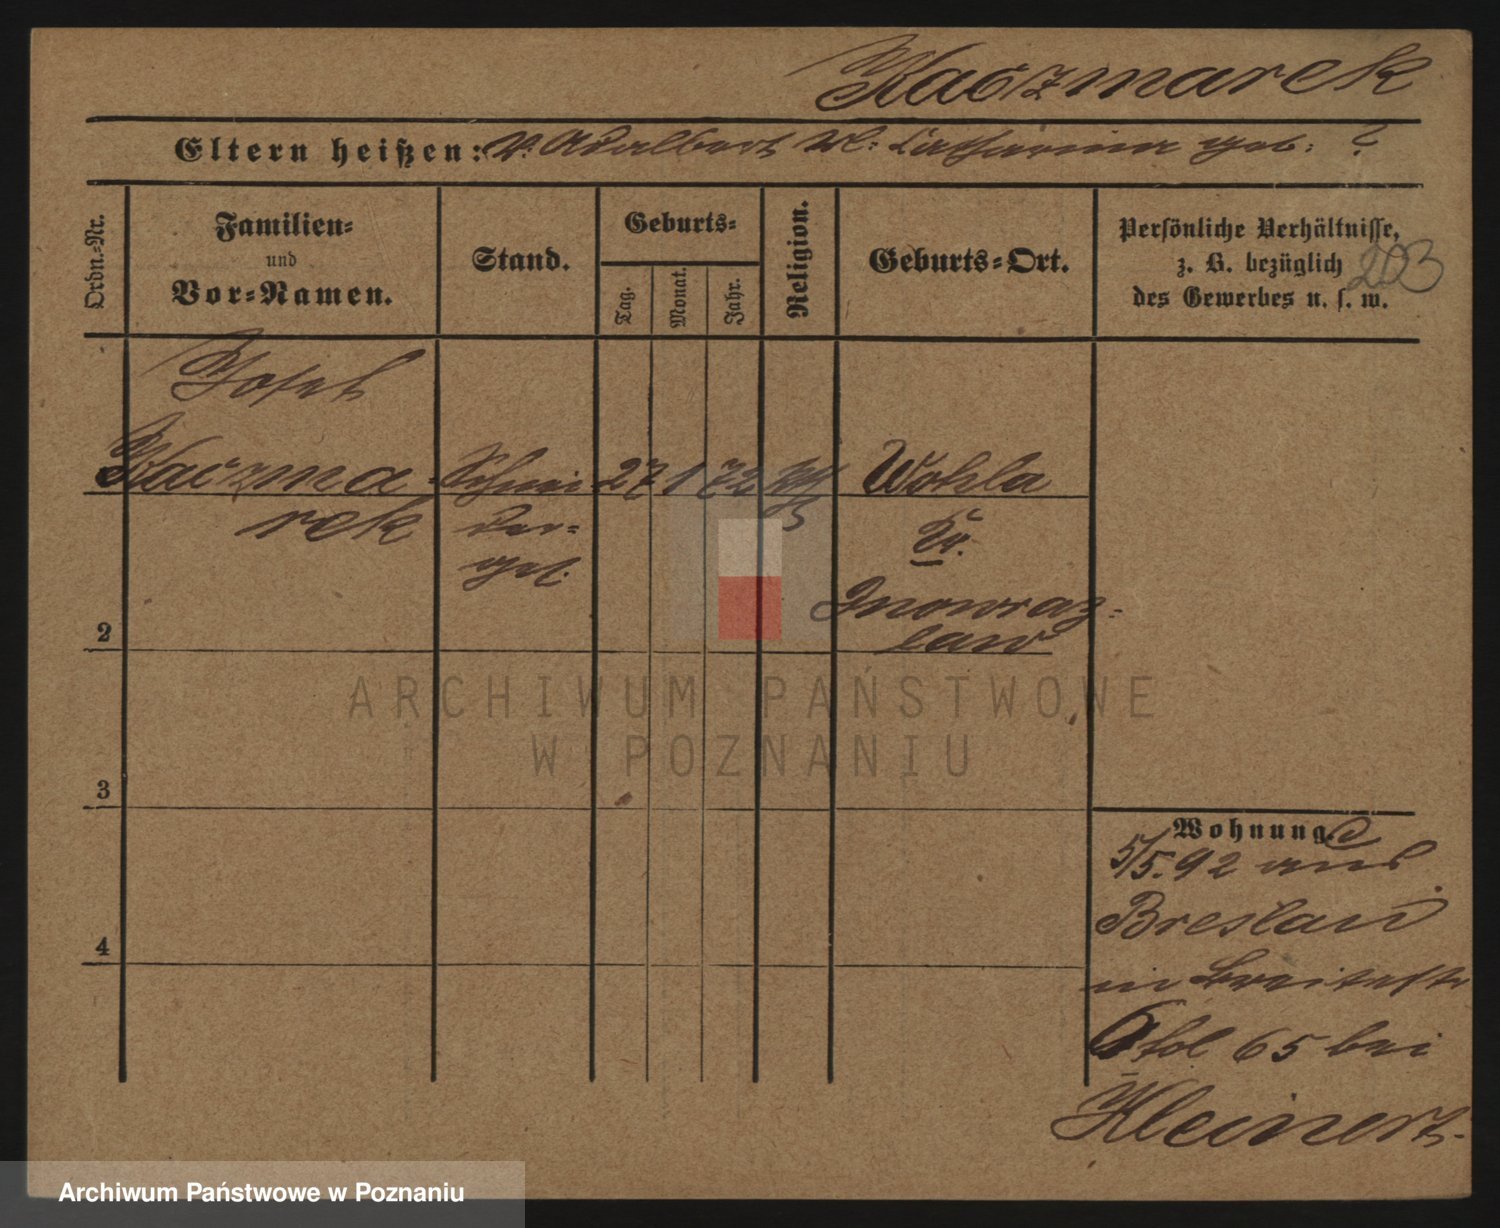 Kaczmarek
Eltern heißen: V: Adalbert M: Catharina geb: ?
Ordn.-Nr.
Familien-
und
Vor-Namen.
Stand.
Geburts-
Tag.
Monat.
Jahr.
Religion.
Geburts-Ort.
Persönliche Verhältnisse,
z. B. bezüglich
des Gewerbes u. s. w.
203
Josef
Kaczma-
rek
Schnei
der-
ges.
27 1 72
Wohla
Kr.
Inowraz-
law
2
3
4
Wohnung.
5/5. 92 aus
Breslau
in Breitestr
6 fol 65 bei
Kleinert.
ARCHIWUM PAŃSTWOWE
W POZNANIU
Archiwum Państwowe w Poznaniu